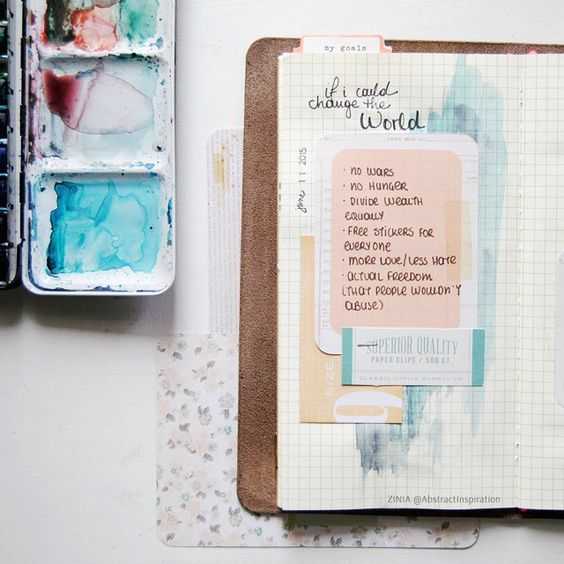 my goals
if i could
change the
World
june 11 2015
• NO WARS
• NO HUNGER
• DIVIDE WEALTH
EQUALLY
• FREE STICKERS FOR
EVERYONE
• MORE LOVE/LESS HATE
• ACTUAL FREEDOM
(THAT PEOPLE WOULDN'Y
ABUSE)
SUPERIOR QUALITY
PAPER CLIPS / 500 CT.
ZINIA @AbstractInspiration